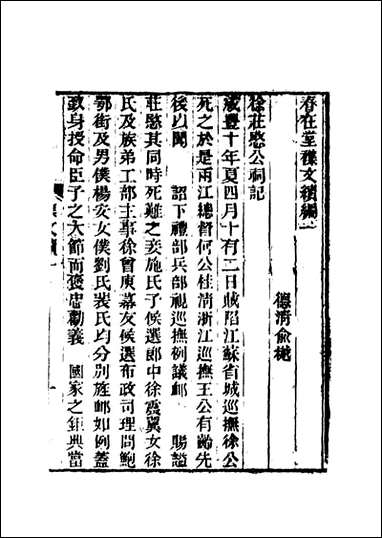 春在堂雜文續編一
德清俞樾
徐莊愍公祠記
咸豐十年夏四月十有二日賊陷江蘇省城巡撫徐公
死之於是兩江總督何公桂清浙江巡撫王公有齡先
後以聞 詔下禮部兵部視巡撫例議卹 賜諡
莊愍其同時死難之妾施氏子候選郎中徐震翼女徐
氏及族弟工部主事徐曾庚幕友候選布政司理問鮑
鄂街及男僕楊安女僕劉氏裴氏均分別旌卹如例蓋
致身授命臣子之大節而褒忠勸義 國家之鉅典當